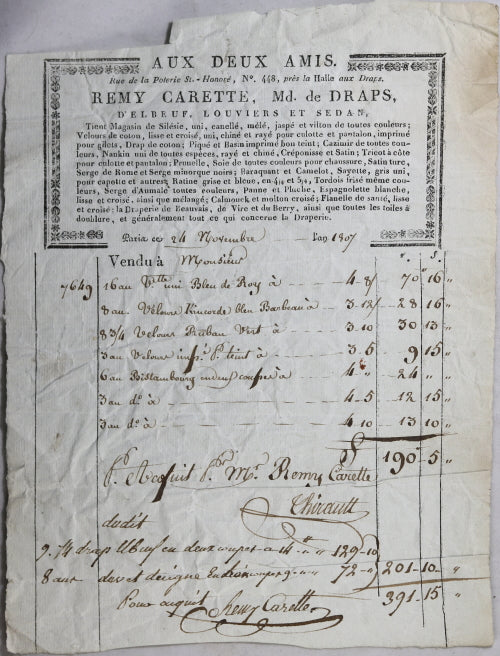 AUX DEUX AMIS.
Rue de la Poterie St.-Honoré, N°. 448, près la Halle aux Draps.
REMY CARETTE, Md. de DRAPS,
D'ELBEUF, LOUVIERS ET SEDAN,
Tient Magasin de Silésie, uni, canellé, mêlé, jaspé et vilton de toutes couleurs;
Velours de coton, lisse et croisé, uni, chiné et rayé pour culotte et pantalon, imprimé
pour gilets, Drap de coton; Piqué et Basin imprimé bon teint; Cazimir de toutes
couleurs, Nankin uni de toutes especes, rayé et chiné, Créponisse et Satin; Tricot à côte
pour culotte et pantalon; Prunelle, Soie de toutes couleurs pour chaussure, Satin turc,
Serge de Rome et Serge minorque noirs; Baraquant et Camelot, Sayette, gris uni,
pour capotte et autres; Ratine grise et bleue, en 4/4 et 5/4, Tordoi frisé même
couleurs, Serge d'Aumale toutes couleurs, Panne et Pluche, Espagnolette blanche,
lisse et croisé, ainsi que mélangé; Calmouck et molton croisé; Flanelle de santé, lisse
et croisé; la Draperie de Beauvais, de Vire et de Berry, ainsi que toutes les toiles à
doublure, et généralement tout ce qui concerne la Draperie.
Paris ce 24 Novembre l'an 1807
Vendu à Monsieur
7649 16 au uni Bleu de Roy à 4-8 70 16 "
8 au Velours bleu Barbeau à 3-12 28 16 "
8 3/4 Velours Ruban Vert à 3-10 30 13 "
3 au Velours imp. pt. teint à 3-5 9 15 "
6 au coupes à 4 " 24 " "
3 au do. à 4-5 12 15 "
3 au do. à 4-10 13 10 "
190 5 "
Pr. Acquit Pr. Mr. Remy Carette
Thirault
dudit
9. 3/4 drap en deux coupes à 14 " 129-10
8 aux 72 " 201-10 "
391-15 "
Pour acquit Remy Carette